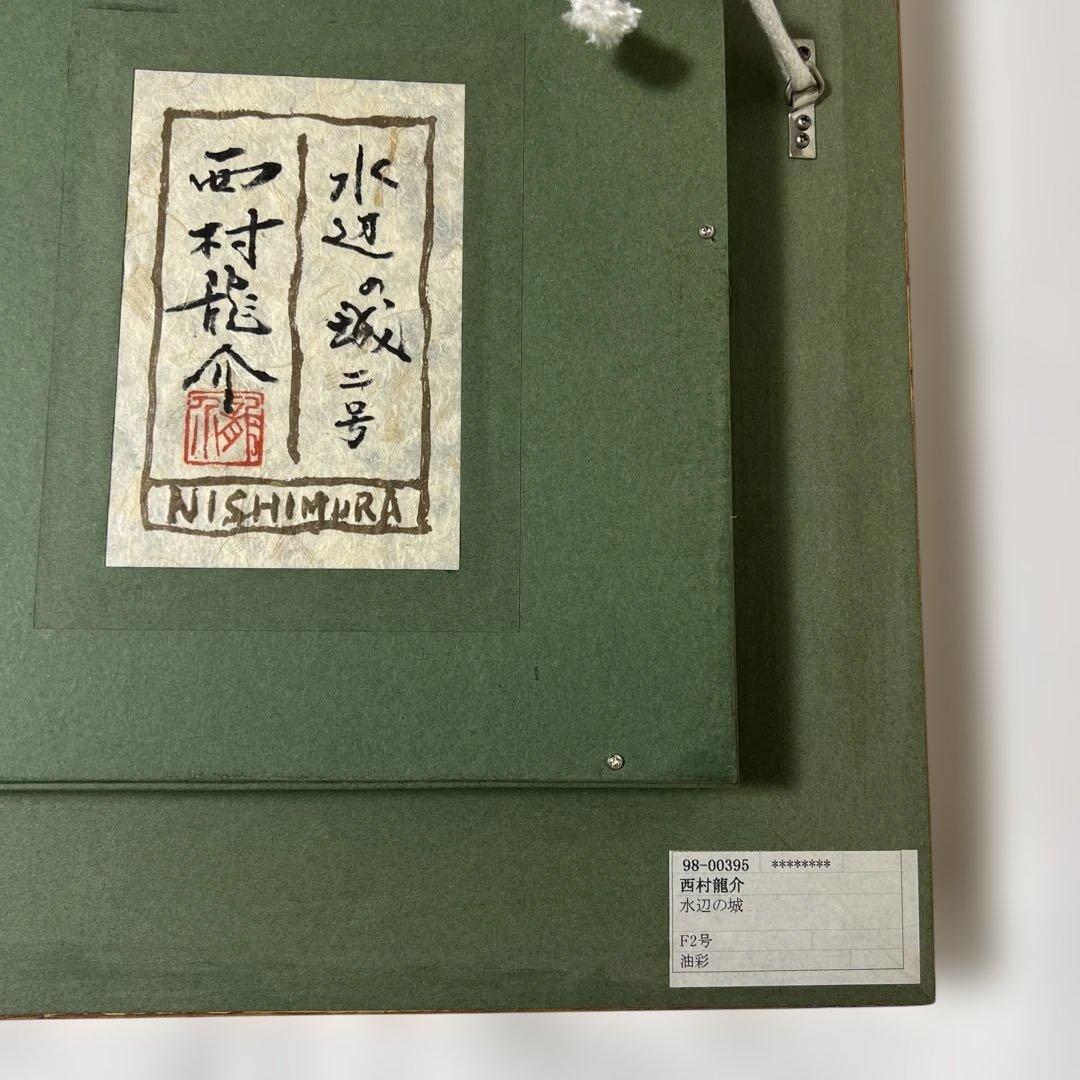 水辺の城 二号
西村龍介
NISHIMURA
98-00395 ********
西村龍介
水辺の城
F2号
油彩